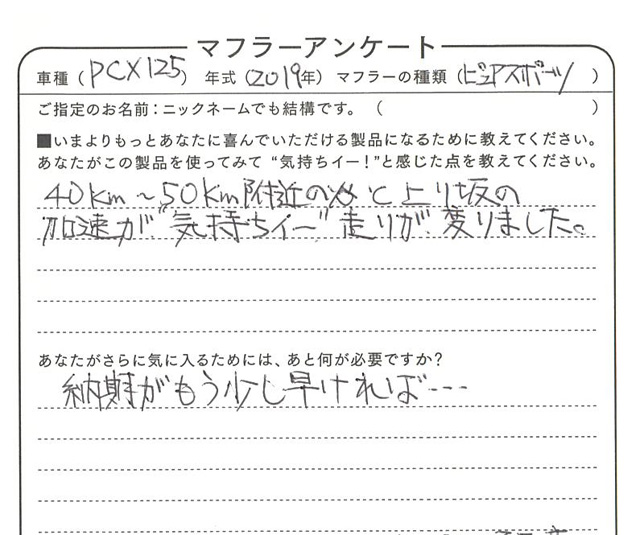 マフラーアンケート
車種（PCX125） 年式（2019年） マフラーの種類（ピュアスポーツ）
ご指定のお名前：ニックネームでも結構です。（ ）
■いまよりもっとあなたに喜んでいただける製品になるために教えてください。
あなたがこの製品を使ってみて“気持ちイー！”と感じた点を教えてください。
40km～50km附近の と上り坂の
加速が“気持ちイー”走りが変りました。
あなたがさらに気に入るためには、あと何が必要ですか？
納期がもう少し早ければ---